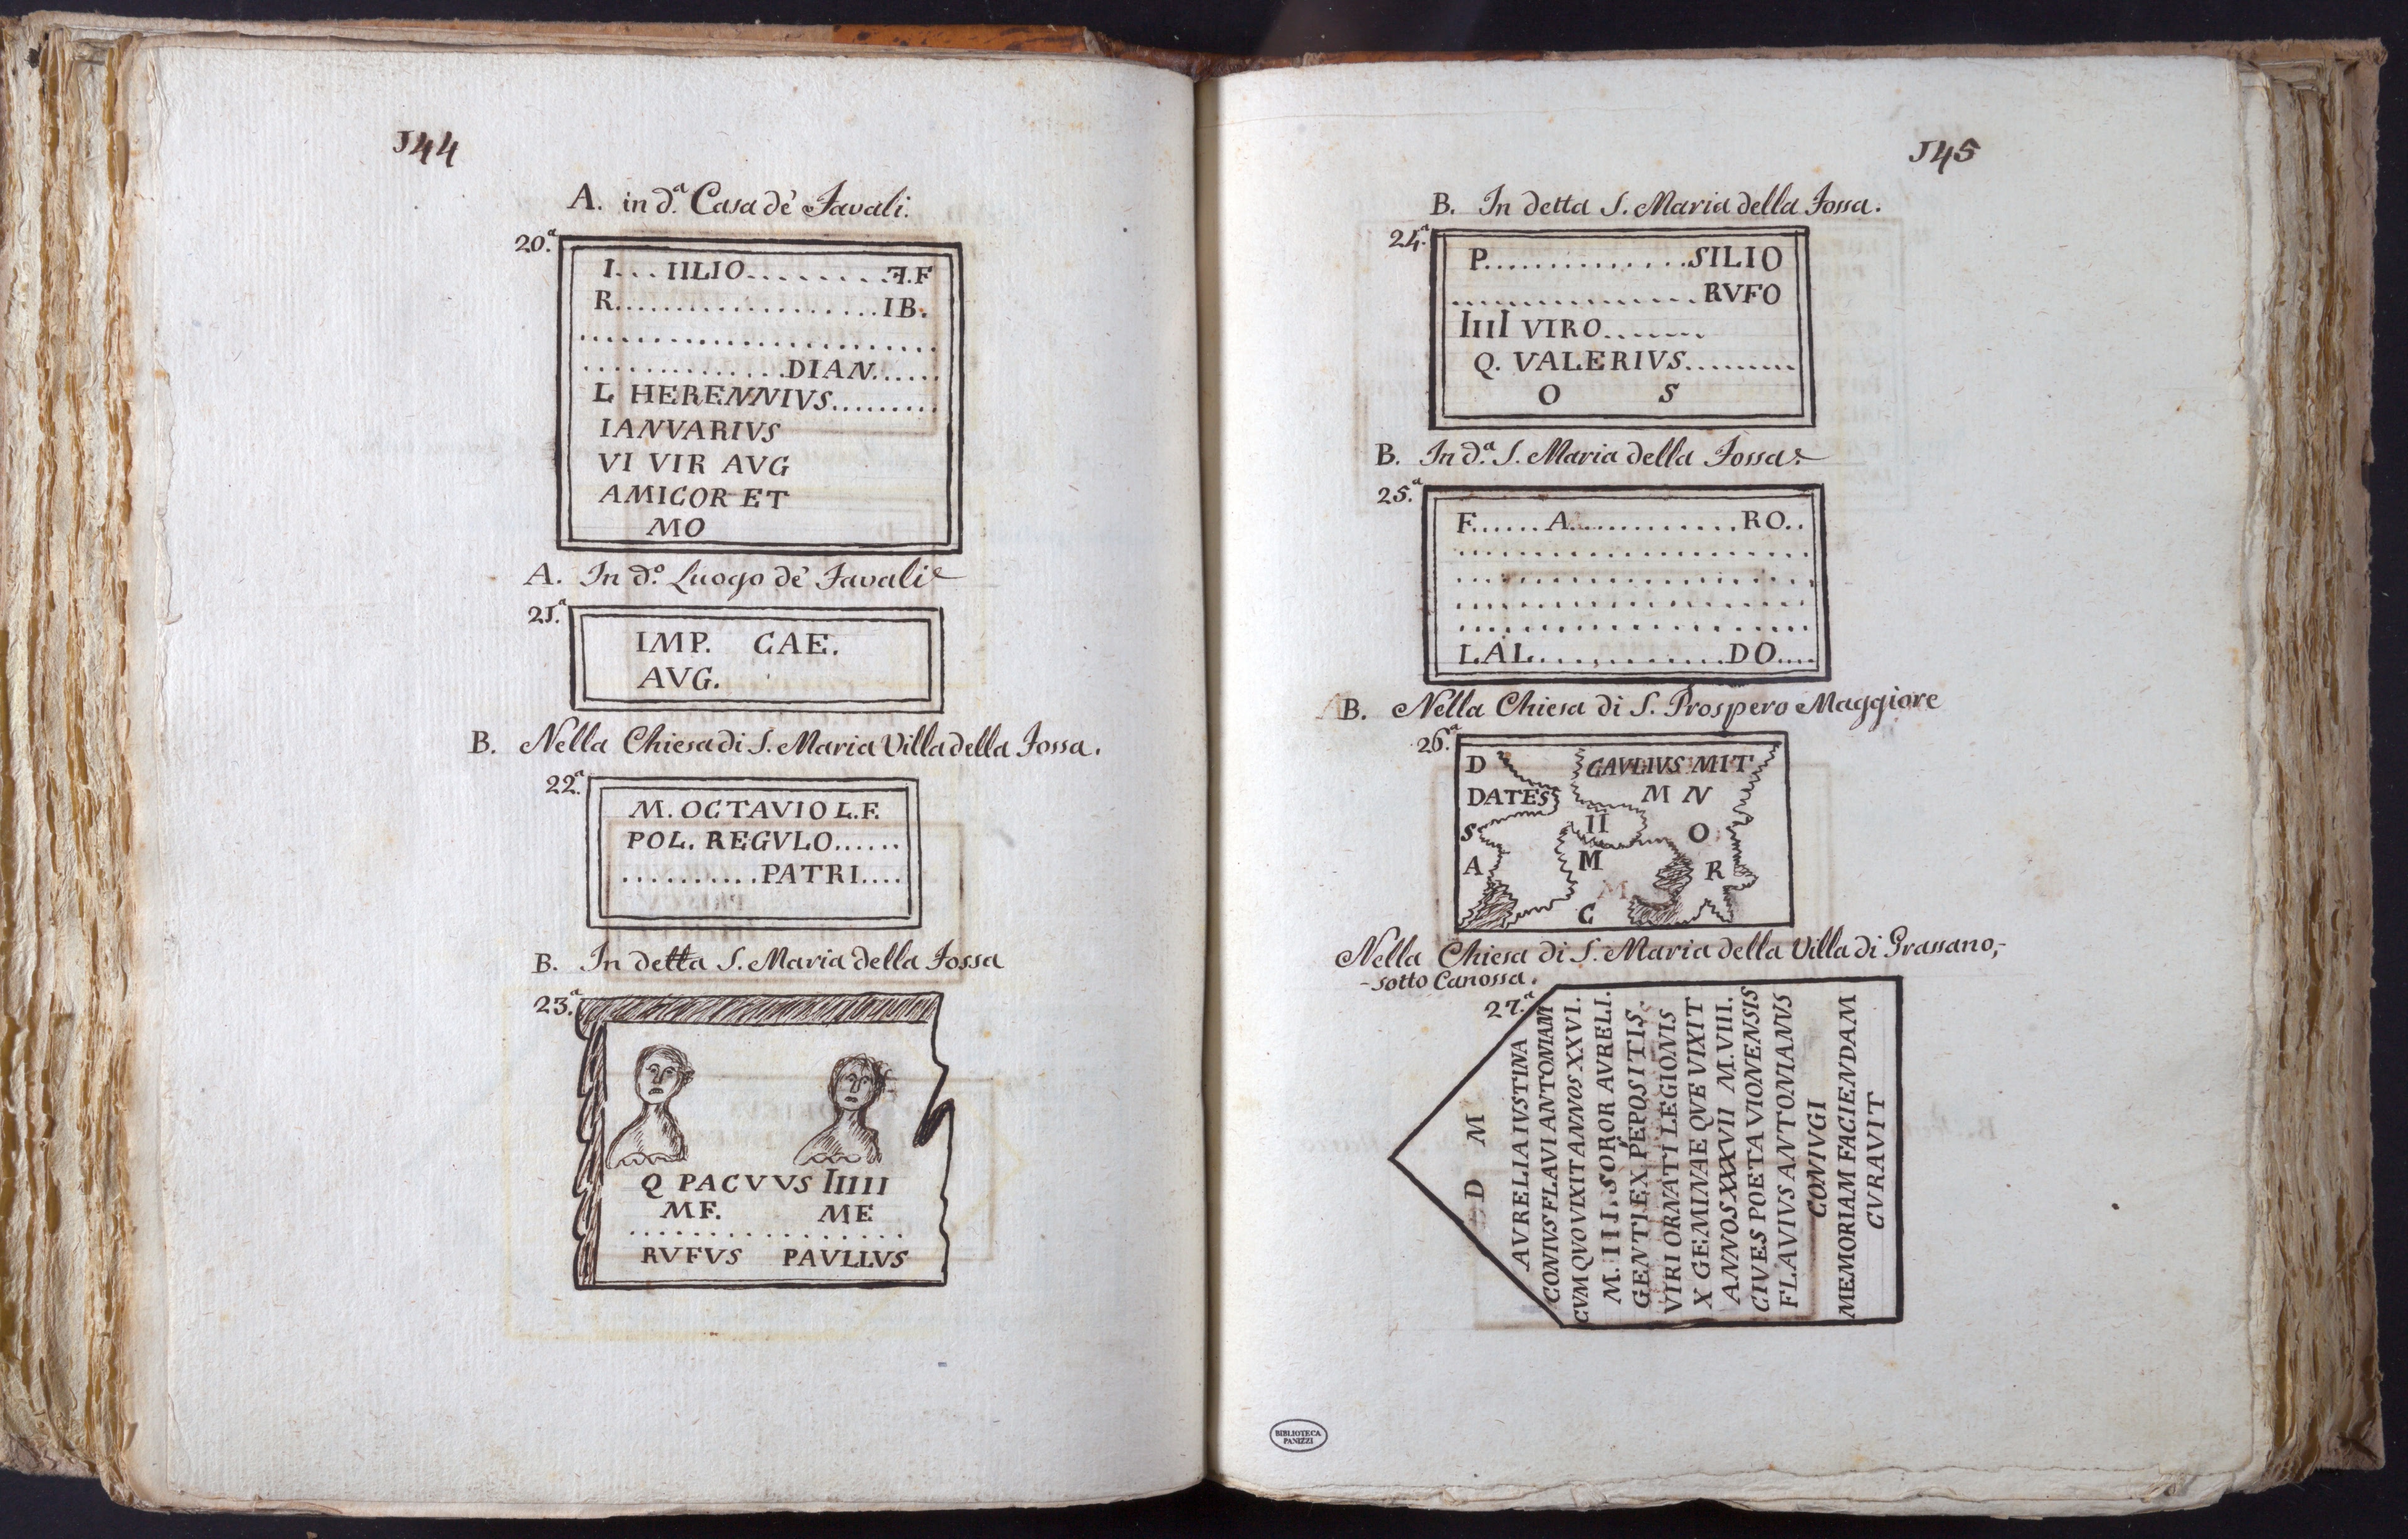 144
A. in d.ª Casa de' Favali.
20.ª
I... IILIO.........F.F
R...................IB.
.........................
..............DIAN......
L HERENNIVS.........
IANVARIVS
VI VIR AVG
AMICOR ET
MO
A. In d.º Luogo de' Favali
21.ª
IMP. CAE.
AVG.
B. Nella Chiesa di S. Maria Villa della Fossa.
22.ª
M. OCTAVIO L.F.
POL. REGVLO......
..........PATRI....
B. In detta S. Maria della Fossa
23.ª
Q PACVVS IIIIII
MF. ME
..................
RVFUS PAVLLVS
145
B. In detta S. Maria della Fossa.
24.ª
P..............SILIO
.................RVFO
IIIII VIRO.......
Q. VALERIVS.........
O S
B. In d.ª S. Maria della Fossa.
25.ª
F......A............RO..
......................
......................
......................
......................
LAL.............DO....
B. Nella Chiesa di S. Prospero Maggiore
26.ª
D GAVLIVS MIT
DATES M N
S II O
A M R
M
C
Nella Chiesa di S. Maria della Villa di Grassano,
-sotto Canossa.
27.ª
D M
AVRELIA IVSTINA
CONIVS FLAVI ANTONIAM
CVM QVO VIXIT ANNOS XXVI.
M. III. SOROR AVRELI.
GENTI EX PEPOSITIS
VIRI ORNATI LEGIONIS
X GEMINAE QVE VIXIT
ANNOS XXXVII M.VIII.
CIVES POETAVIONENSIS
FLAVIVS ANTONIANVS
CONIVGI
MEMORIAM FACIENDAM
CVRAVIT
BIBLIOTECA
PANIZZI